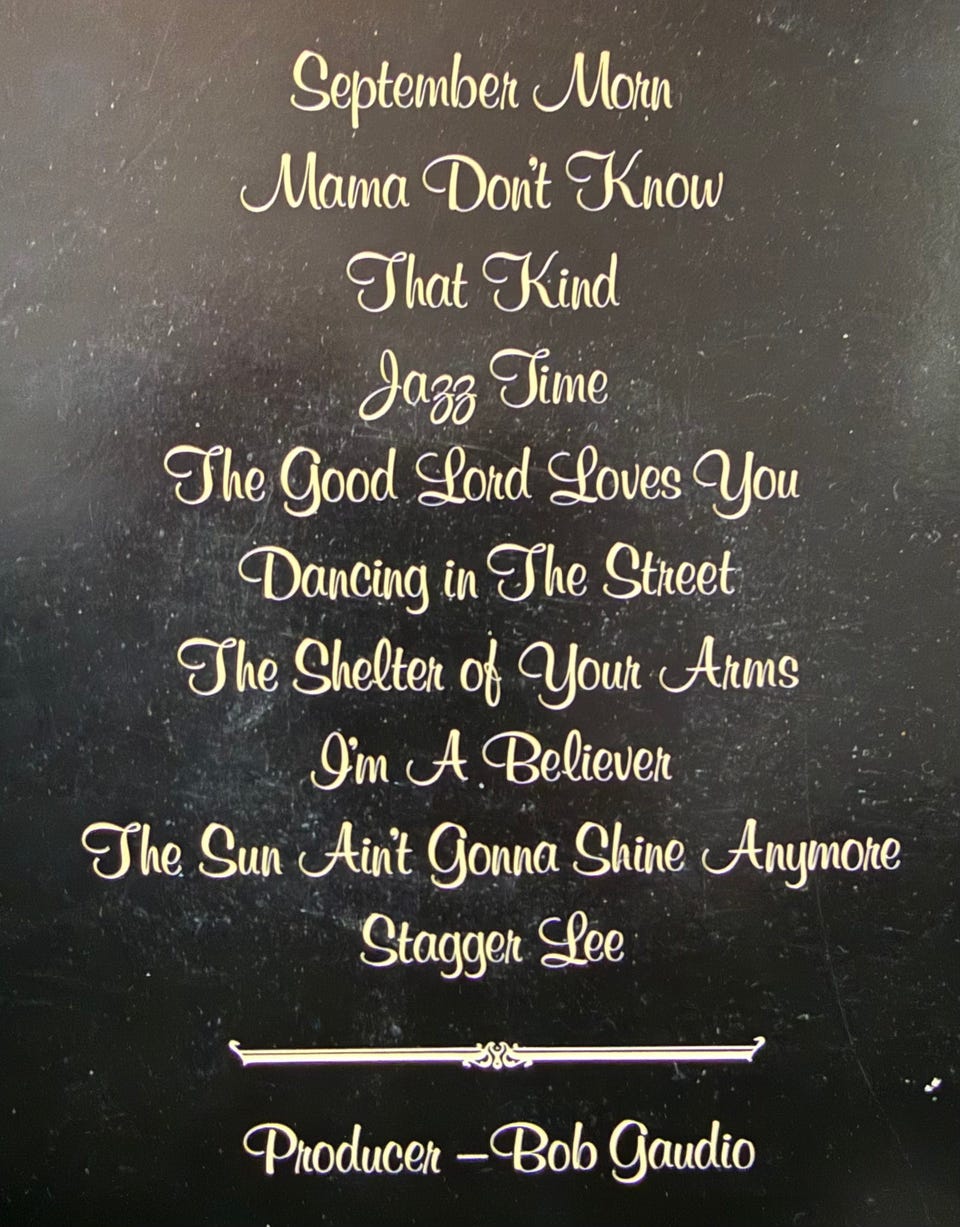 September Morn
Mama Don't Know
That Kind
Jazz Time
The Good Lord Loves You
Dancing in The Street
The Shelter of Your Arms
I'm A Believer
The Sun Ain't Gonna Shine Anymore
Stagger Lee
Producer – Bob Gaudio